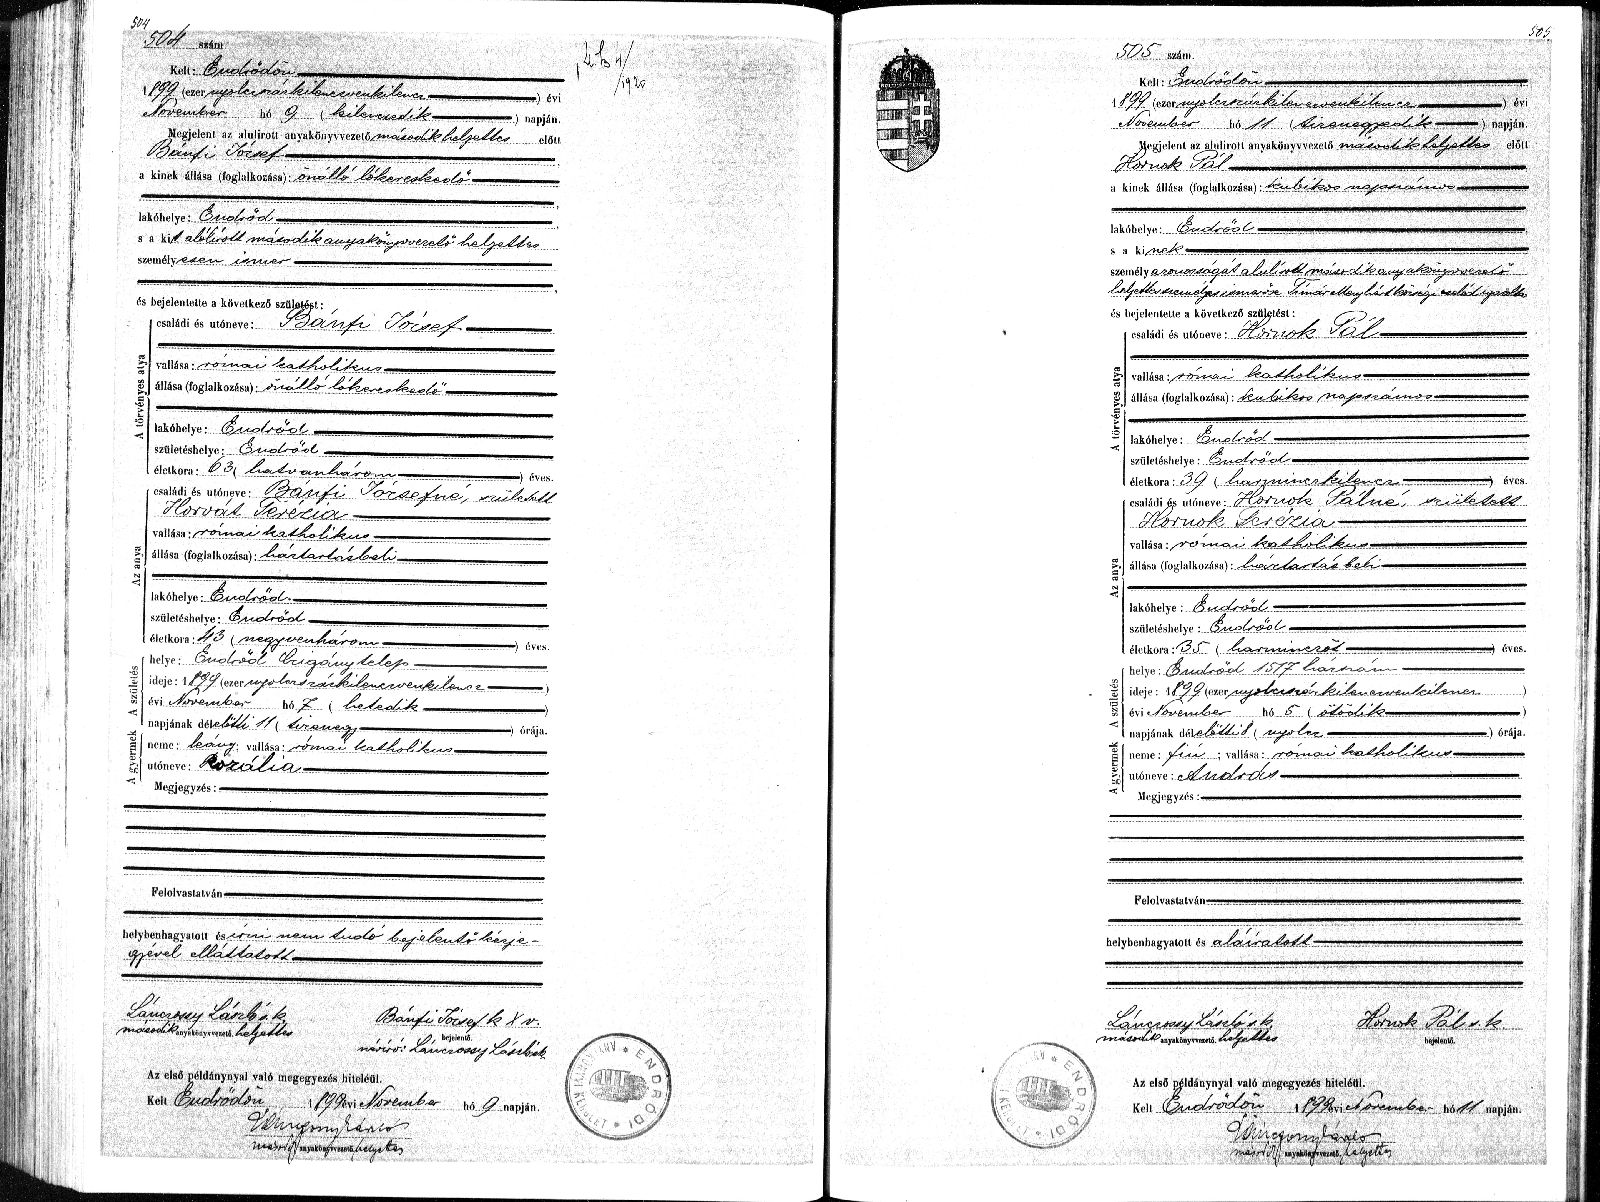 504
504 szám
Kelt: Endrődön
1899 (ezer nyolczszázkilenczvenkilencz) évi
November hó 9 (kilenczedik) napján.
Megjelent az alulirott anyakönyvvezető második helyettes előtt
Bánfi József
a kinek állása (foglalkozása): önálló lókereskedő
lakóhelye: Endrőd
s a kit alólírott második anyakönyvvezető helyettes
személyesen ismer
és bejelentette a következő születést:
A törvényes atya
családi és utóneve: Bánfi József
vallása: római katholikus
állása (foglalkozása): önálló lókereskedő
lakóhelye: Endrőd
születéshelye: Endrőd
életkora: 63 (hatvanhárom) éves.
Az anya
családi és utóneve: Bánfi Józsefné, született
Horvát Terézia
vallása: római katholikus
állása (foglalkozása): háztartásbeli
lakóhelye: Endrőd
születéshelye: Endrőd
életkora: 43 (negyvenhárom) éves.
A születés
helye: Endrőd Czigánytelep
ideje: 1899 (ezer nyolczszázkilenczvenkilencz)
évi November hó 7 (hetedik)
napjának délelőtti 11 (tizenegy) órája.
A gyermek
neme: leány; vallása: római katholikus
utóneve: Rozália
Megjegyzés:
Felolvastatván
helybenhagyatott és írni nem tudó bejelentő kézje-
gyével elláttatott
Lánczossy László s.k. Bánfi József k X v.
második anyakönyvvezető helyettes bejelentő.
névíró: Lánczossy László s.k.
Az első példánynyal való megegyezés hiteléül.
Kelt Endrődön 1899 évi November hó 9 napján.
második anyakönyvvezető helyettes
ENDRŐDI
1920
505
505 szám.
Kelt: Endrődön
1899 (ezer nyolczszázkilenczvenkilencz) évi
November hó 11 (tizenegyedik) napján.
Megjelent az alulirott anyakönyvvezető második helyettes előtt
Hornok Pál
a kinek állása (foglalkozása): kubikos napszámos
lakóhelye: Endrőd
s a kinek
személyazonosságát alulírott második anyakönyvvezető
helyettes személyes ismerőse Tímár Menyhárt községi
és bejelentette a következő születést:
A törvényes atya
családi és utóneve: Hornok Pál
vallása: római katholikus
állása (foglalkozása): kubikos napszámos
lakóhelye: Endrőd
születéshelye: Endrőd
életkora: 39 (harminczkilencz) éves.
Az anya
családi és utóneve: Hornok Pálné, született
Hornok Terézia
vallása: római katholikus
állása (foglalkozása): háztartásbeli
lakóhelye: Endrőd
születéshelye: Endrőd
életkora: 35 (harminczöt) éves.
A születés
helye: Endrőd 1517 házszám
ideje: 1899 (ezer nyolczszázkilenczvenkilencz)
évi November hó 5 (ötödik)
napjának délelőtti 8 (nyolcz) órája.
A gyermek
neme: fiú; vallása: római katholikus
utóneve: András
Megjegyzés:
Felolvastatván
helybenhagyatott és aláiratott
Lánczossy László s.k. Hornok Pál s.k.
második anyakönyvvezető helyettes bejelentő.
Az első példánynyal való megegyezés hiteléül.
Kelt Endrődön 1899 évi November hó 11 napján.
második anyakönyvvezető helyettes
ENDRŐDI